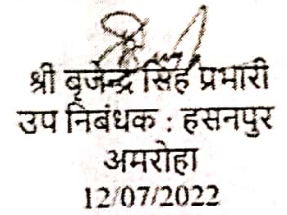 श्री बृजेन्द्र सिंह प्रभारी
उप निबंधक : हसनपुर
अमरोहा
12/07/2022